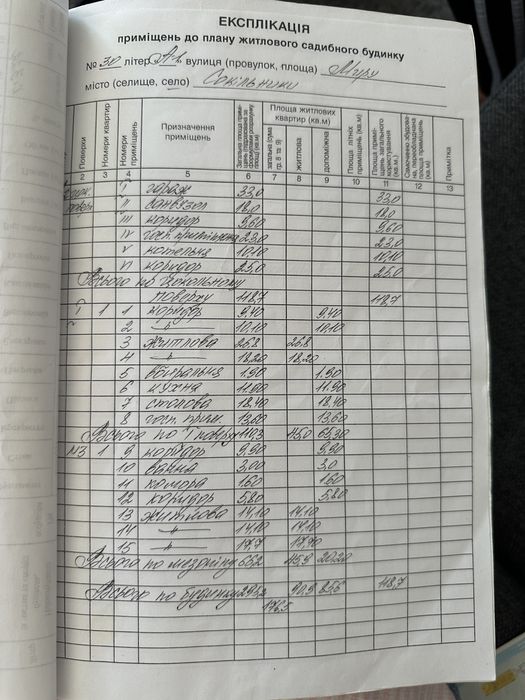 ЕКСПЛІКАЦІЯ
приміщень до плану житлового садибного будинку
№ 30 літер А-1, вулиця (провулок, площа) Миру
місто (селище, село) Сокільники
Поверхи
Номери квартир
Номери приміщень
Призначення приміщень
Загальна площа приміщень
Площа житлових квартир (кв.м)
загальна (сума гр. 8 та 9)
житлова
допоміжна
Площа літніх приміщень (кв.м)
Площа приміщень загального користування (кв.м.)
Самочинно збудована, переобладнана площа приміщень (кв.м)
Примітка
2 3 4 5 6 7 8 9 10 11 12 13
I гараж 33,0 33,0
II санвузол 18,0 18,0
III коридор 9,60 9,60
IV госп. приміщення 23,0 23,0
V котельня 10,10 10,10
VI коридор 25,0 25,0
Всього по цокольному
поверху 118,7 118,7
1 1 1 коридор 9,40 9,40
2 -"- 10,10 10,10
3 житлова 26,8 26,8
4 -"- 18,20 18,20
5 вбиральня 1,90 1,90
6 кухня 11,90 11,90
7 столова 18,40 18,40
8 госп. прим. 13,60 13,60
Всього по 1 поверху 110,3 45,0 65,30
МЗ 1 9 коридор 9,90 9,90
10 ванна 3,00 3,0
11 комора 1,60 1,60
12 коридор 5,80 5,80
13 житлова 14,10 14,10
14 -"- 14,10 14,10
15 -"- 17,7 17,70
Всього по мезоніну 66,2 45,9 20,20
Всього по будинку 295,2 90,9 85,6 118,7
176,5